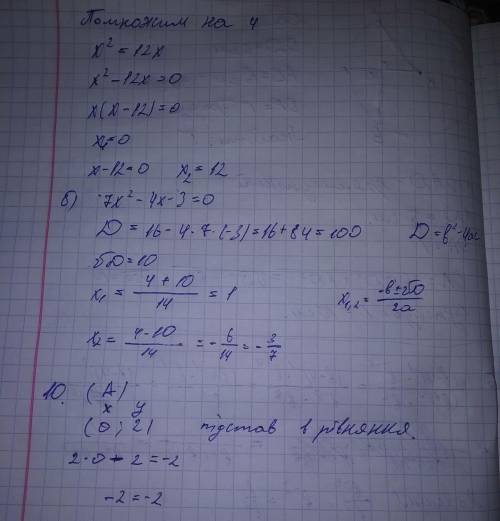 Помножим на 4
x² = 12x
x² - 12x = 0
x(x - 12) = 0
x₁ = 0
x - 12 = 0 x₂ = 12
б) 7x² - 4x - 3 = 0
D = 16 - 4 · 7 · (-3) = 16 + 84 = 100 D = b² - 4ac
√D = 10
x₁ = (4 + 10)/14 = 1 x₁,₂ = (-b ± √D)/2a
x₂ = (4 - 10)/14 = - 6/14 = - 3/7
10. (A)
x y
(0; 2) підстав в рівняння.
2 · 0 - 2 = -2
-2 = -2